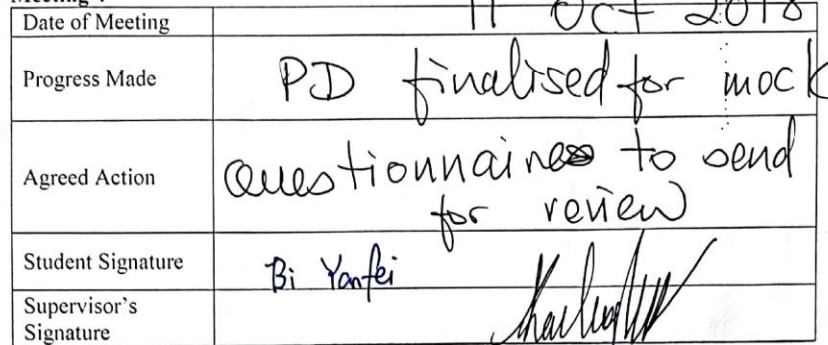 Date of Meeting 11 Oct 2018
Progress Made PD finalised for mock
Agreed Action Questionnaires to send
for review
Student Signature Bi Yanfei
Supervisor's
Signature